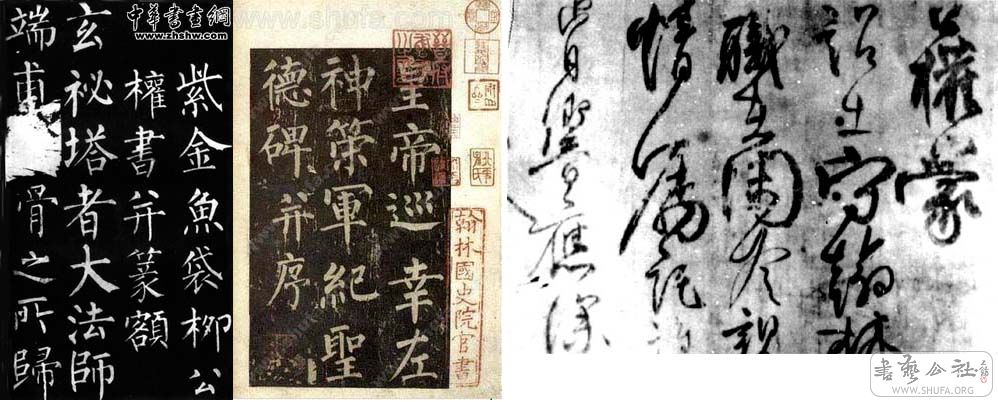 中華書畫網
www.zhshw.com
紫金魚袋柳公
權書并篆額
玄祕塔者大法師
端甫骨之所歸
www.shufa.com
皇帝巡幸左
神策軍紀聖
德碑并序
翰林國史院官書
權蒙
詔出守翰林
職在閑冷親
情囑託
肯響應深
書藝公社
WWW.SHUFA.ORG